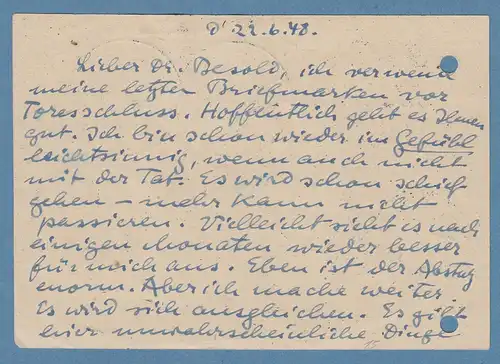 D' 22.6.48.
Lieber Dr. Besold, ich verwende
meine letzten Briefmarken vor
Toresschluss. Hoffentlich geht es Ihnen
gut. Ich bin schon wieder im Gefühl
leichtsinnig, wenn auch nicht
mit der Tat. Es wird schon schief
gehen – mehr kann nicht
passieren. Vielleicht sieht es nach
einigen Monaten wieder besser
für mich aus. Eben ist der Abstieg
enorm. Aber ich mache weiter.
Es wird sich ausgleichen. Es gibt
hier unwahrscheinliche Dinge